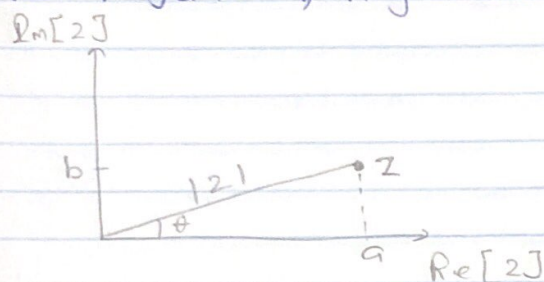 Im[z]
b
|z|
z
θ
a
Re[z]